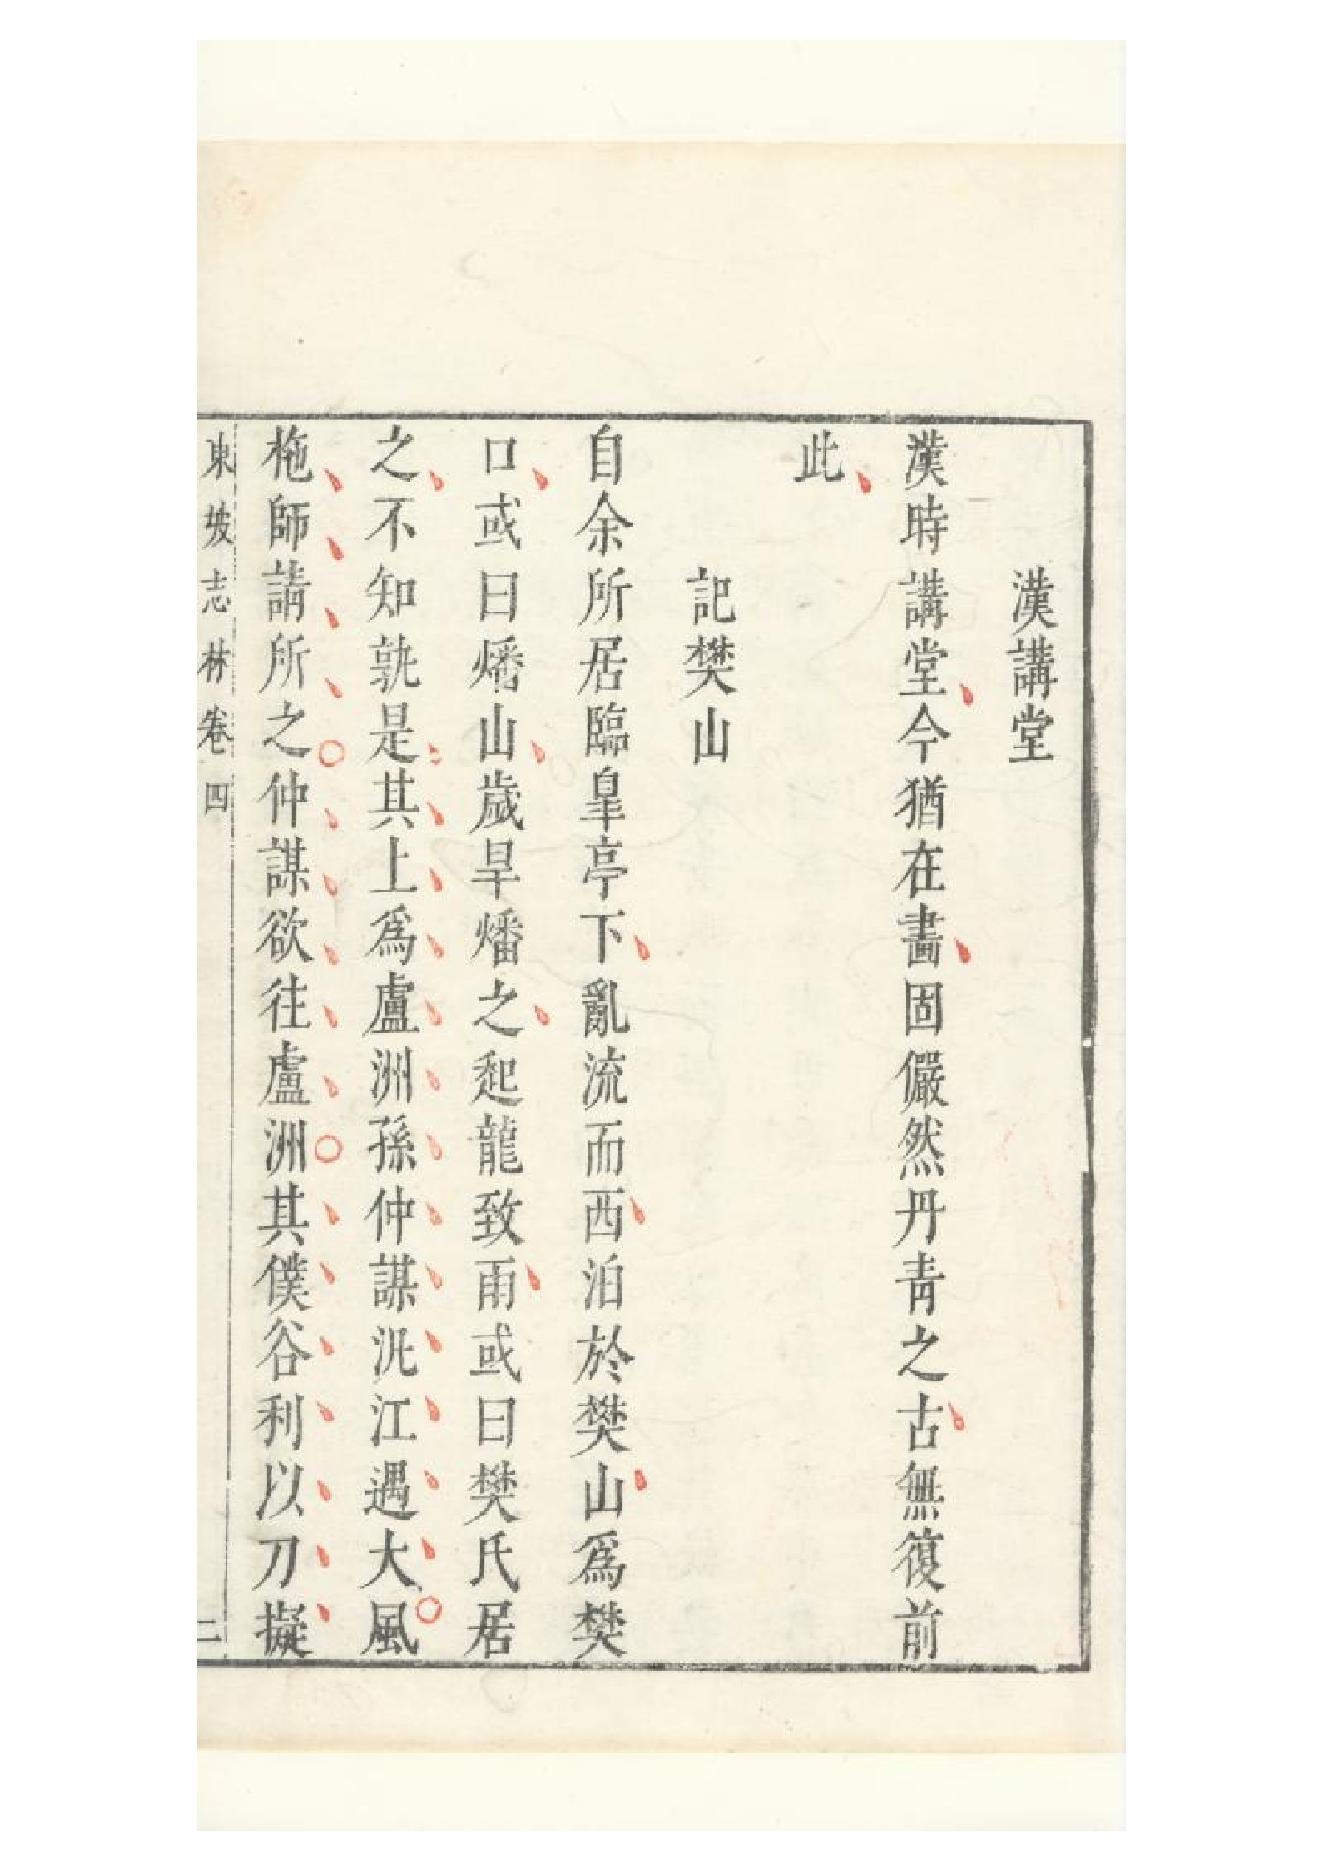 漢講堂
漢時講堂今猶在畵固儼然丹青之古無復前
此
記樊山
自余所居臨臯亭下亂流而西泊於樊山爲樊
口或曰燔山歲旱燔之起龍致雨或曰樊氏居
之不知孰是其上爲盧洲孫仲謀汎江遇大風
柂師請所之仲謀欲往盧洲其僕谷利以刀擬
東坡志林卷四
二